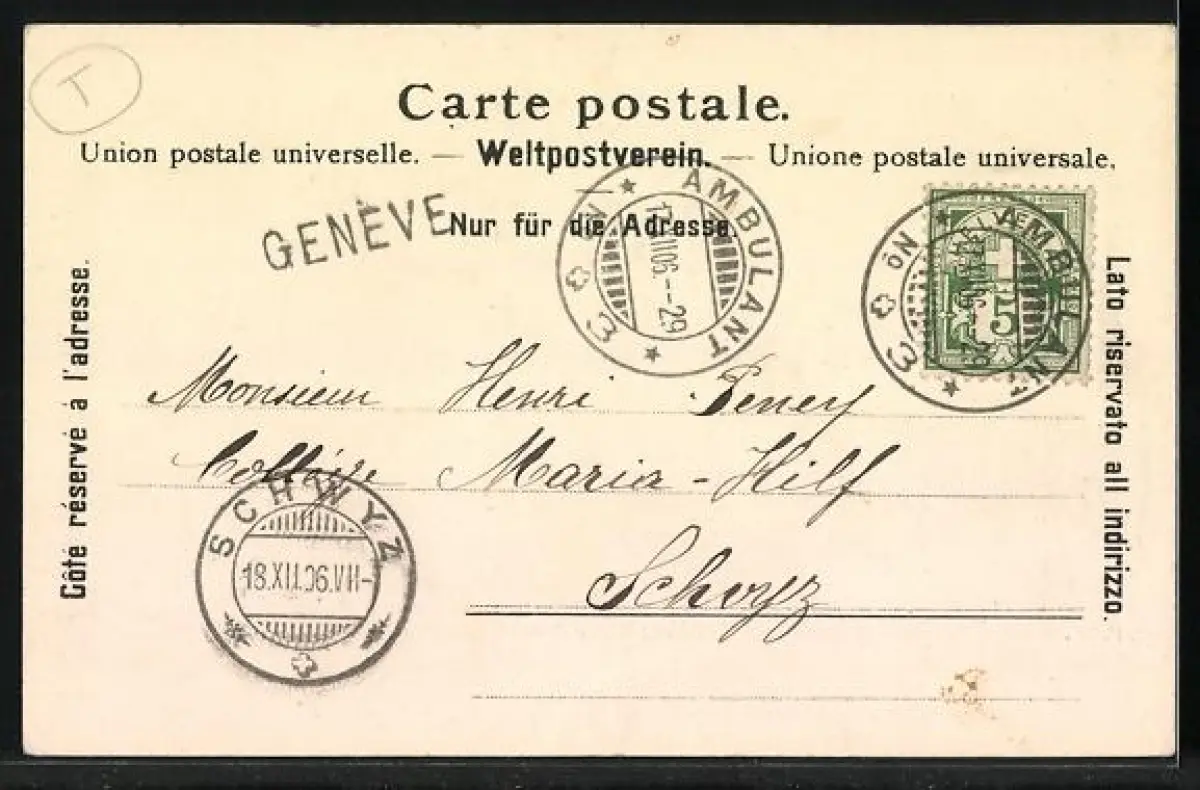 T
Carte postale.
Union postale universelle. — Weltpostverein. — Unione postale universale.
GENÈVE
Nur für die Adresse.
AMBULANT
No 3
AMBULANT
No 3
5
Côté réservé à l'adresse.
Lato riservato all indirizzo.
Monsieur Henri
Collège Maria-Hilf
Schwyz
SCHWYZ
18.XII.06.VII-